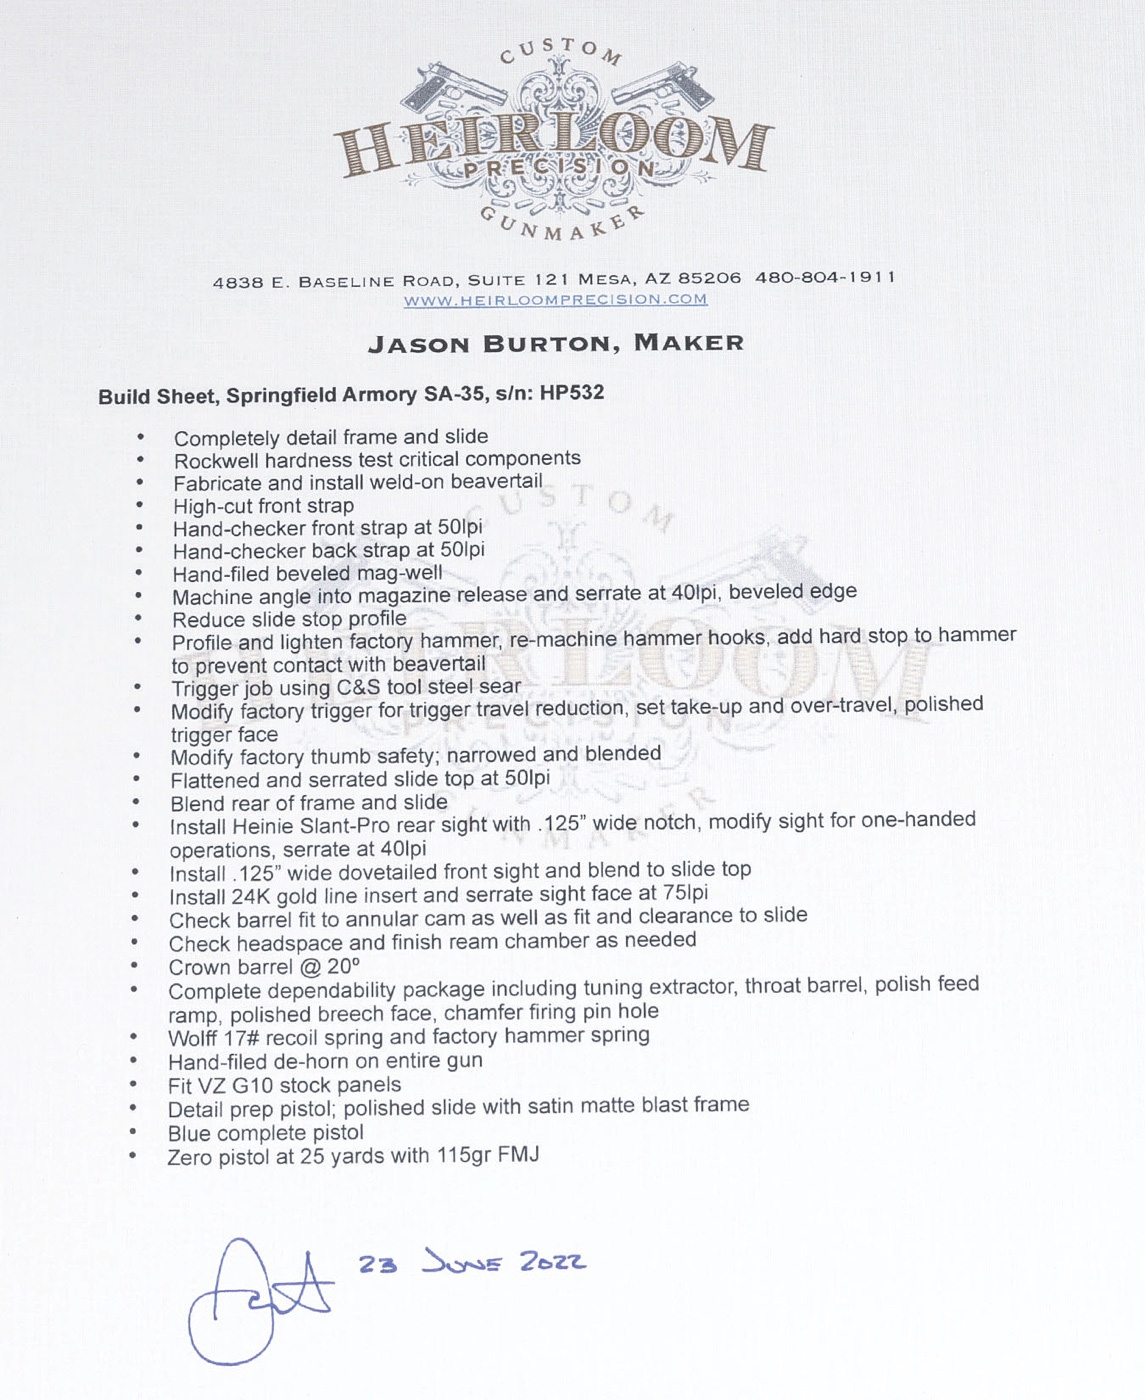 CUSTOM
HEIRLOOM
PRECISION
GUNMAKER
4838 E. BASELINE ROAD, SUITE 121 MESA, AZ 85206 480-804-1911
WWW.HEIRLOOMPRECISION.COM
JASON BURTON, MAKER
Build Sheet, Springfield Armory SA-35, s/n: HP532
• Completely detail frame and slide
• Rockwell hardness test critical components
• Fabricate and install weld-on beavertail
• High-cut front strap
• Hand-checker front strap at 50lpi
• Hand-checker back strap at 50lpi
• Hand-filed beveled mag-well
• Machine angle into magazine release and serrate at 40lpi, beveled edge
• Reduce slide stop profile
• Profile and lighten factory hammer, re-machine hammer hooks, add hard stop to hammer
to prevent contact with beavertail
• Trigger job using C&S tool steel sear
• Modify factory trigger for trigger travel reduction, set take-up and over-travel, polished
trigger face
• Modify factory thumb safety; narrowed and blended
• Flattened and serrated slide top at 50lpi
• Blend rear of frame and slide
• Install Heinie Slant-Pro rear sight with .125” wide notch, modify sight for one-handed
operations, serrate at 40lpi
• Install .125” wide dovetailed front sight and blend to slide top
• Install 24K gold line insert and serrate sight face at 75lpi
• Check barrel fit to annular cam as well as fit and clearance to slide
• Check headspace and finish ream chamber as needed
• Crown barrel @ 20º
• Complete dependability package including tuning extractor, throat barrel, polish feed
ramp, polished breech face, chamfer firing pin hole
• Wolff 17# recoil spring and factory hammer spring
• Hand-filed de-horn on entire gun
• Fit VZ G10 stock panels
• Detail prep pistol; polished slide with satin matte blast frame
• Blue complete pistol
• Zero pistol at 25 yards with 115gr FMJ
23 JUNE 2022